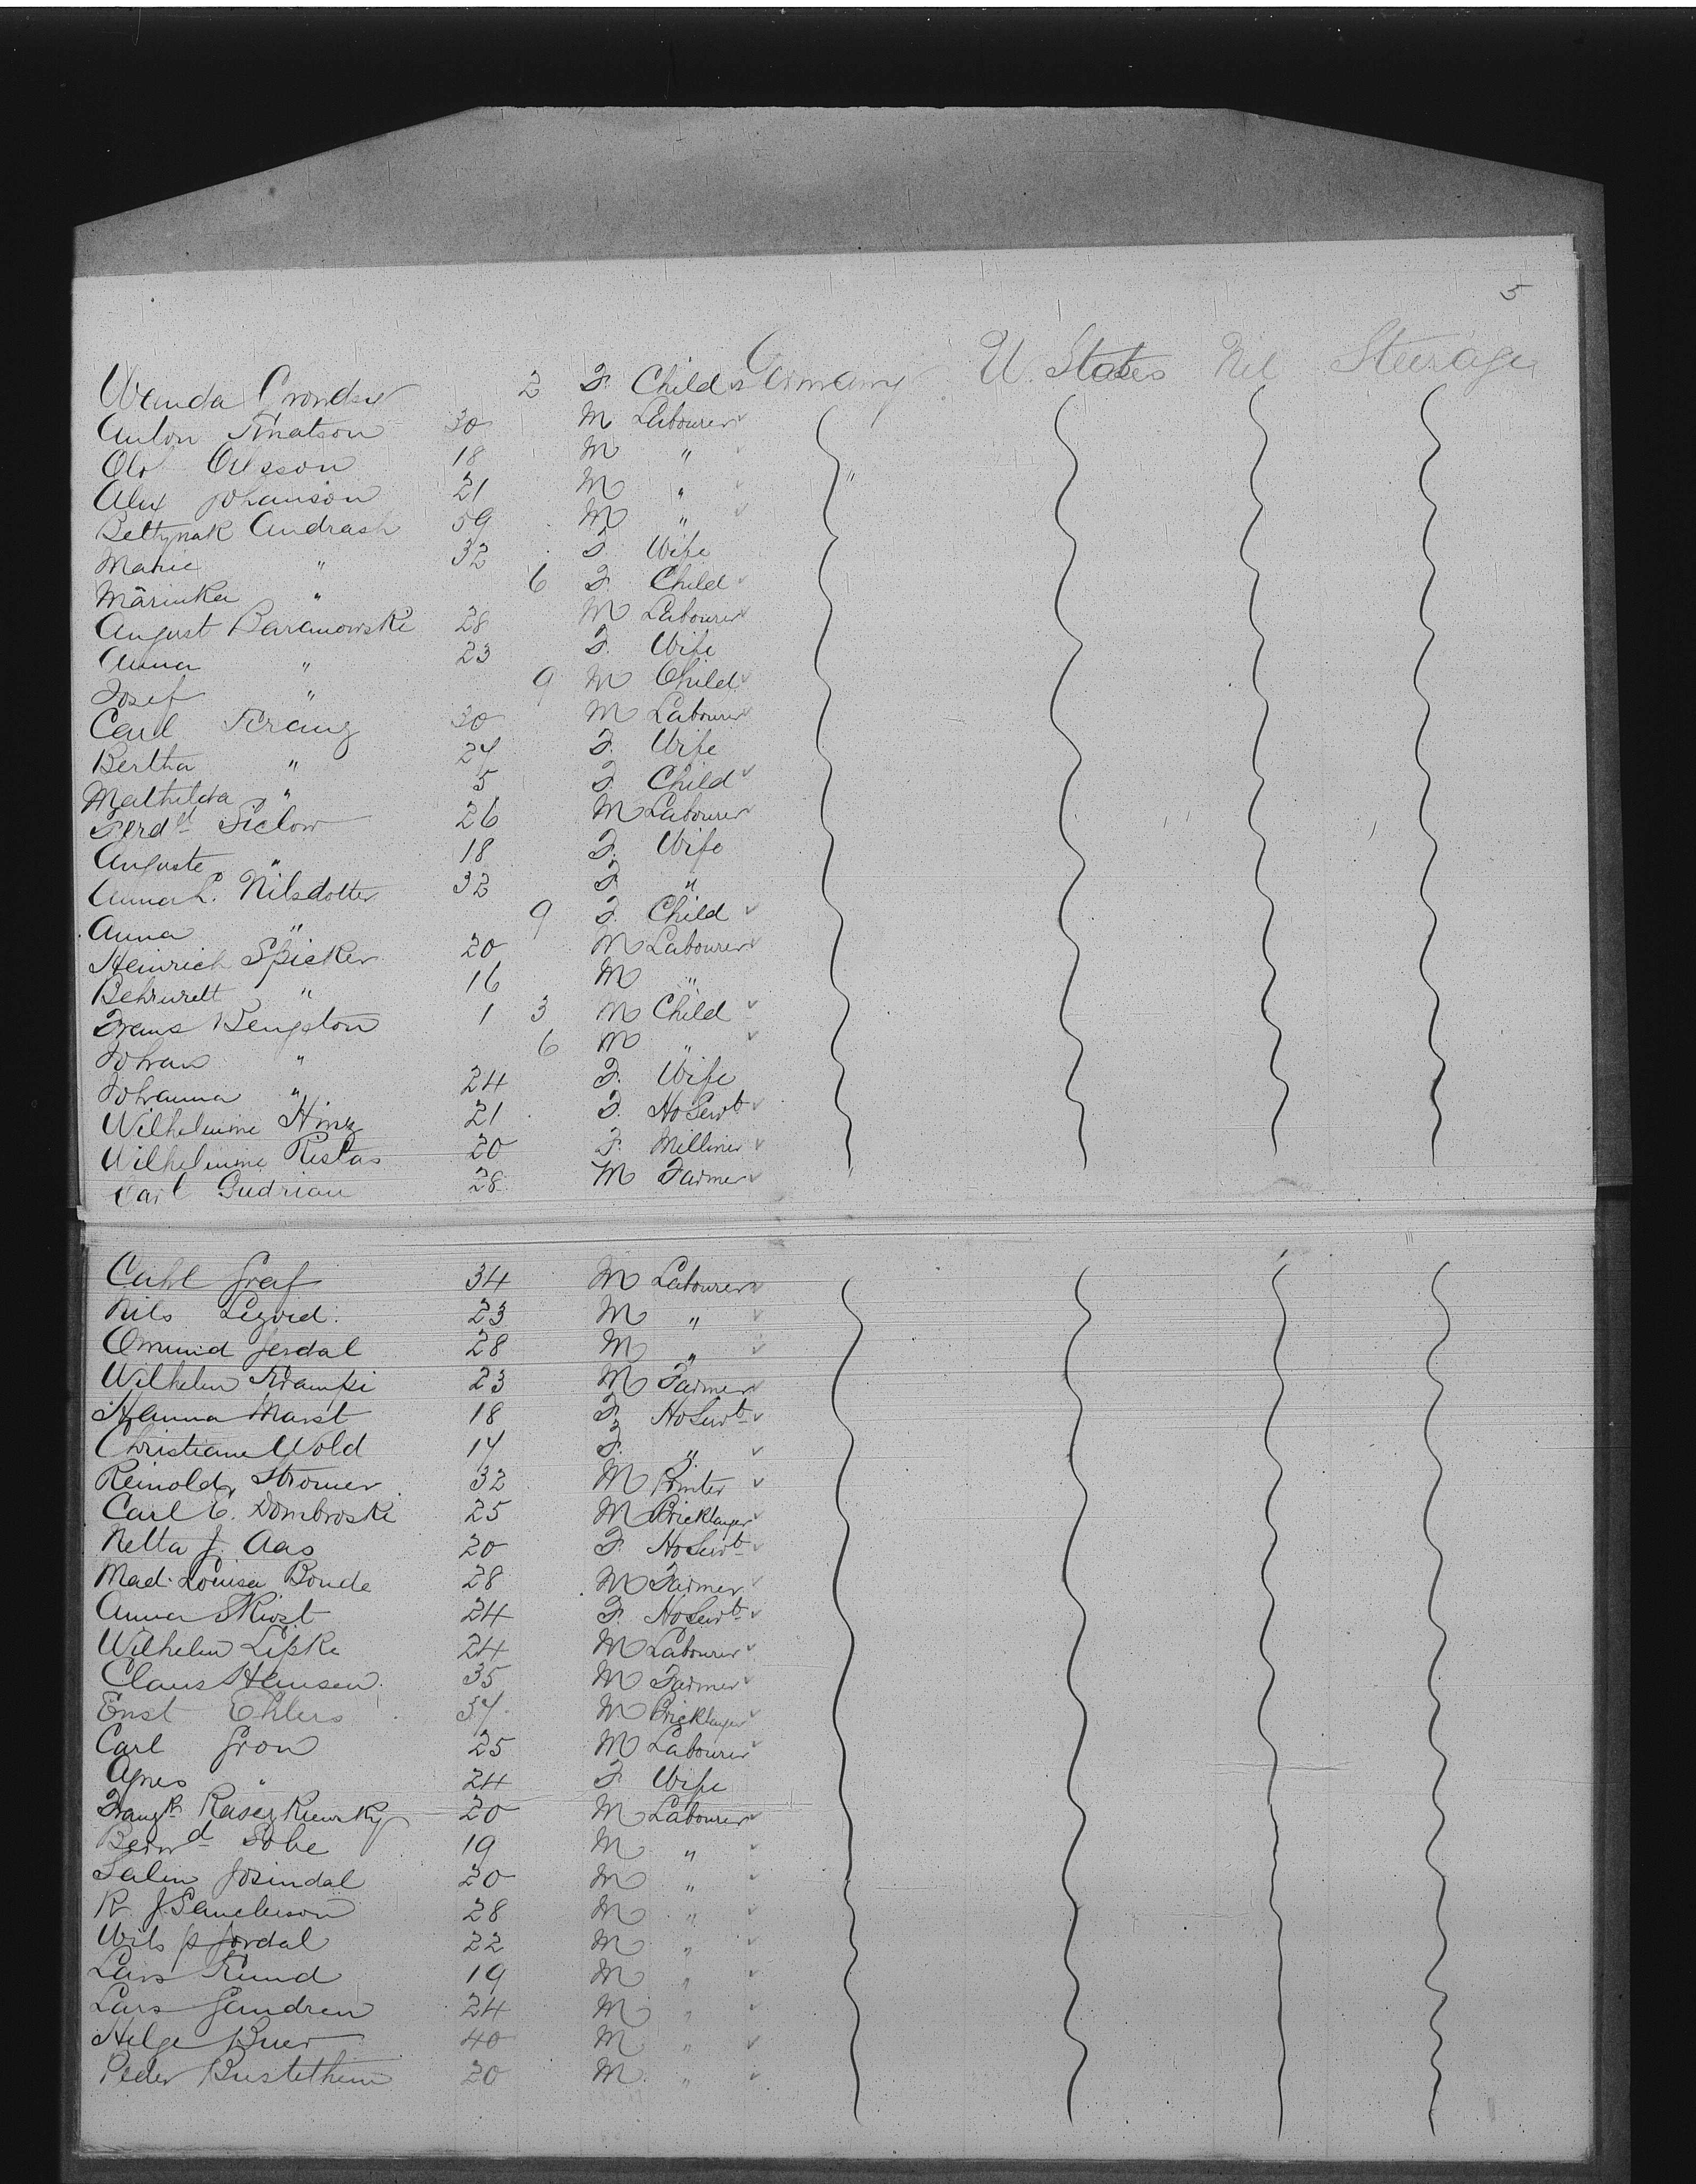 5
Wanda Crondsy 2 F. Child Germany U. States Nil Steerage
Anton Knatson 30 M Labourer
Olof Oilsson 18 M "
Alex Johanson 21 M " "
Bettynak Andrash 59 M "
Marie " 32 F. Wife
Mārinka " 6 F. Child
August Baranowski 28 M Labourer
Anna " 23 F. Wife
Josef " 9 M Child
Carl Kranz 30 M Labourer
Bertha " 24 F. Wife
Mathilda " 5 F. Child
Ferdd Sielow 26 M Labourer
Auguste " 18 F. Wife
Anna L. Nilsdotter 32 F "
Anna " 9 F. Child
Heinrich Spicker 20 M Labourer
" 16 M "
Frans Bengston 1 3 M Child
Johan " 6 M "
Johanna " 24 F. Wife
Wilhelmine Hinz 21 F. Ho Servt
Wilhelmine Ristas 20 F. Milliner
Carl Gudrian 28 M Farmer
Carl Graf 34 M Labourer
Nils 23 M "
Omund Jerdal 28 M "
Wilhelm Krampi 23 M Farmer
Hanna Marst 18 F. Ho Servt
Christiane Wold 17 F. "
Reinold Stromer 32 M Printer
Carl C. Dombroski 25 M Bricklayer
Netta J. Aas 20 F. Ho Servt
Mad. Louisa Bonde 28 M Farmer
Anna Skiost 24 F. Ho Servt
Wilhelm Lipke 24 M Labourer
Claus Hansen 35 M Farmer
Enst Ehlers 37 M Bricklayer
Carl Gron 25 M Labourer
Agnes " 24 F. Wife
20 M Labourer
Bernd Sobe 19 M "
Salin 20 M "
R. J. Sanderson 28 M "
Wils p Jordal 22 M "
Lars Kund 19 M "
Lars Gundren 24 M "
Helge Buer 40 M "
Peder Bustethun 20 M "